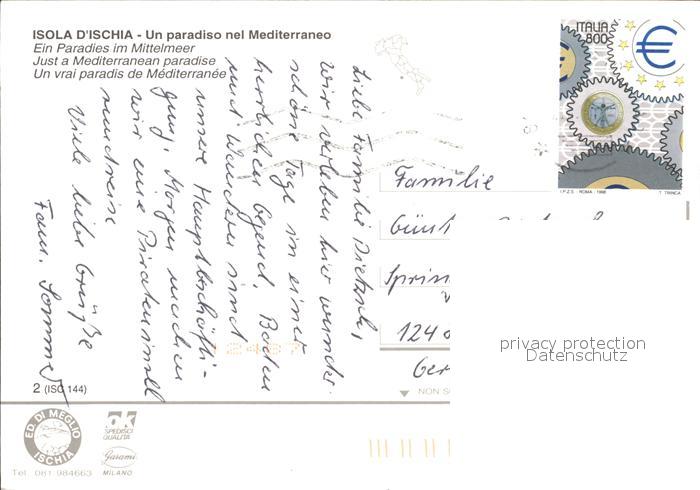 ISOLA D'ISCHIA - Un paradiso nel Mediterraneo
Ein Paradies im Mittelmeer
Just a Mediterranean paradise
Un vrai paradis de Méditerranée
ITALIA
800
I.P.Z.S. - ROMA - 1998
T. TRINCA
Liebe Familie Dietzsch,
wir verleben hier wunder-
schöne Tage in einer
herrlichen Gegend. Baden
und Wandern sind
unsere Hauptbeschäfti-
gung. Morgen machen
wir eine
Viele liebe Grüße
Fam. Sommer
Familie
Günt
Sprin
124
Ger
privacy protection
Datenschutz
NON S
2 (ISC 144)
ED. DI MEGLIO
ISCHIA
Tel. 081 984663
ok
SPEDISCI
QUALITÀ
Garami
MILANO